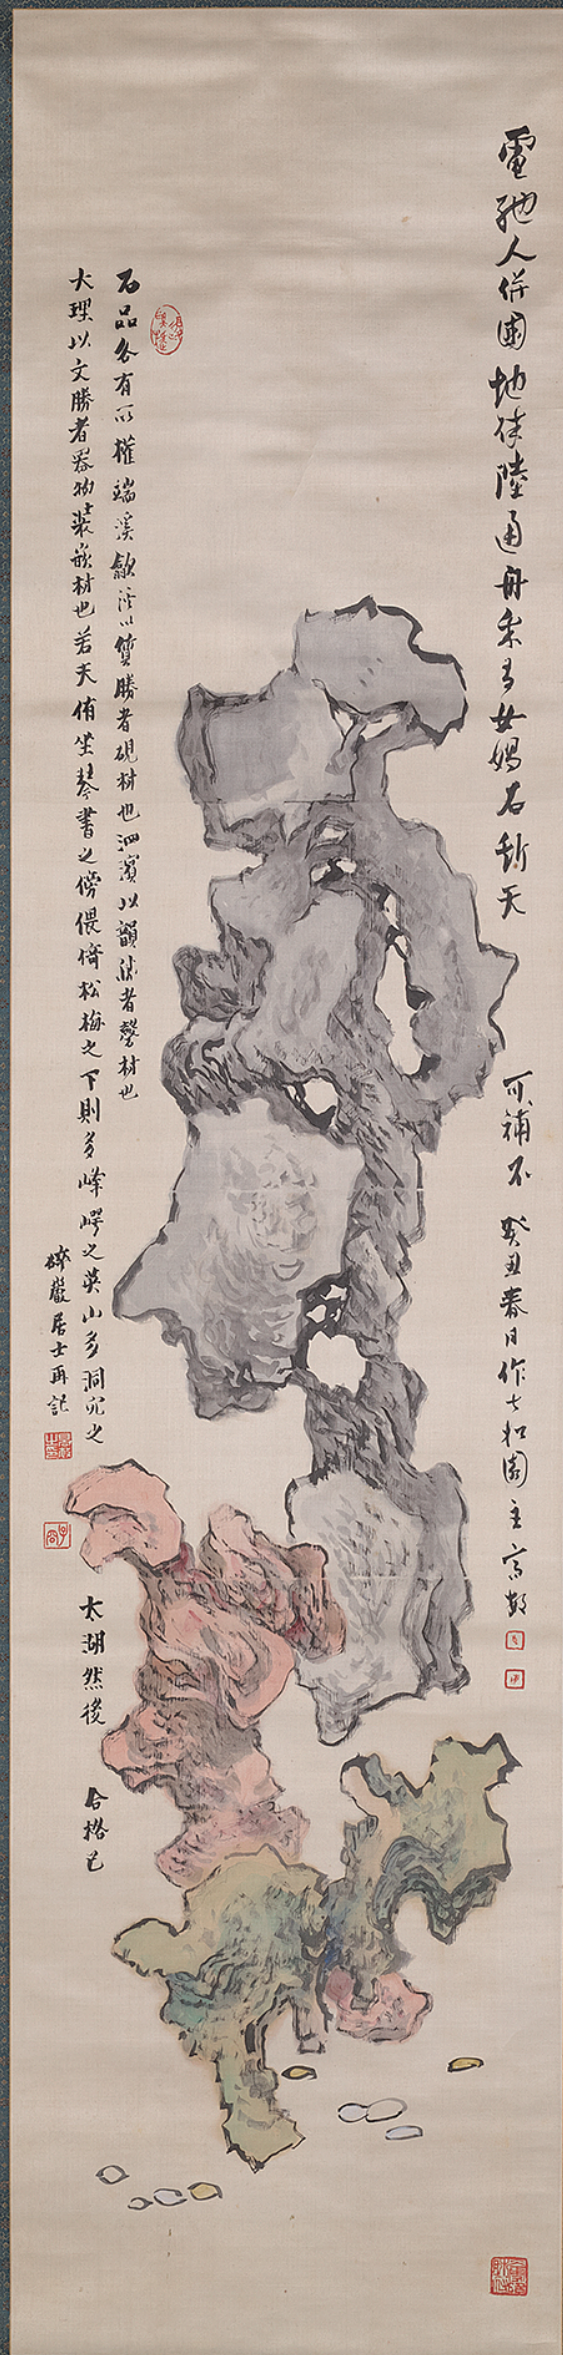 電馳人併園地徒陸通舟桑有女媧石新天
可補不 癸丑春日作 七和園主高敬
石品各有所權端溪歙溪以質勝者硯材也泗濱以韻勝者磬材也
大理以文勝者器物裝嵌材也若夫侑坐琴書之傍偎倚松梅之下則多峰崿之英山多洞穴之
太湖然後 合格已
碎巖居士再記